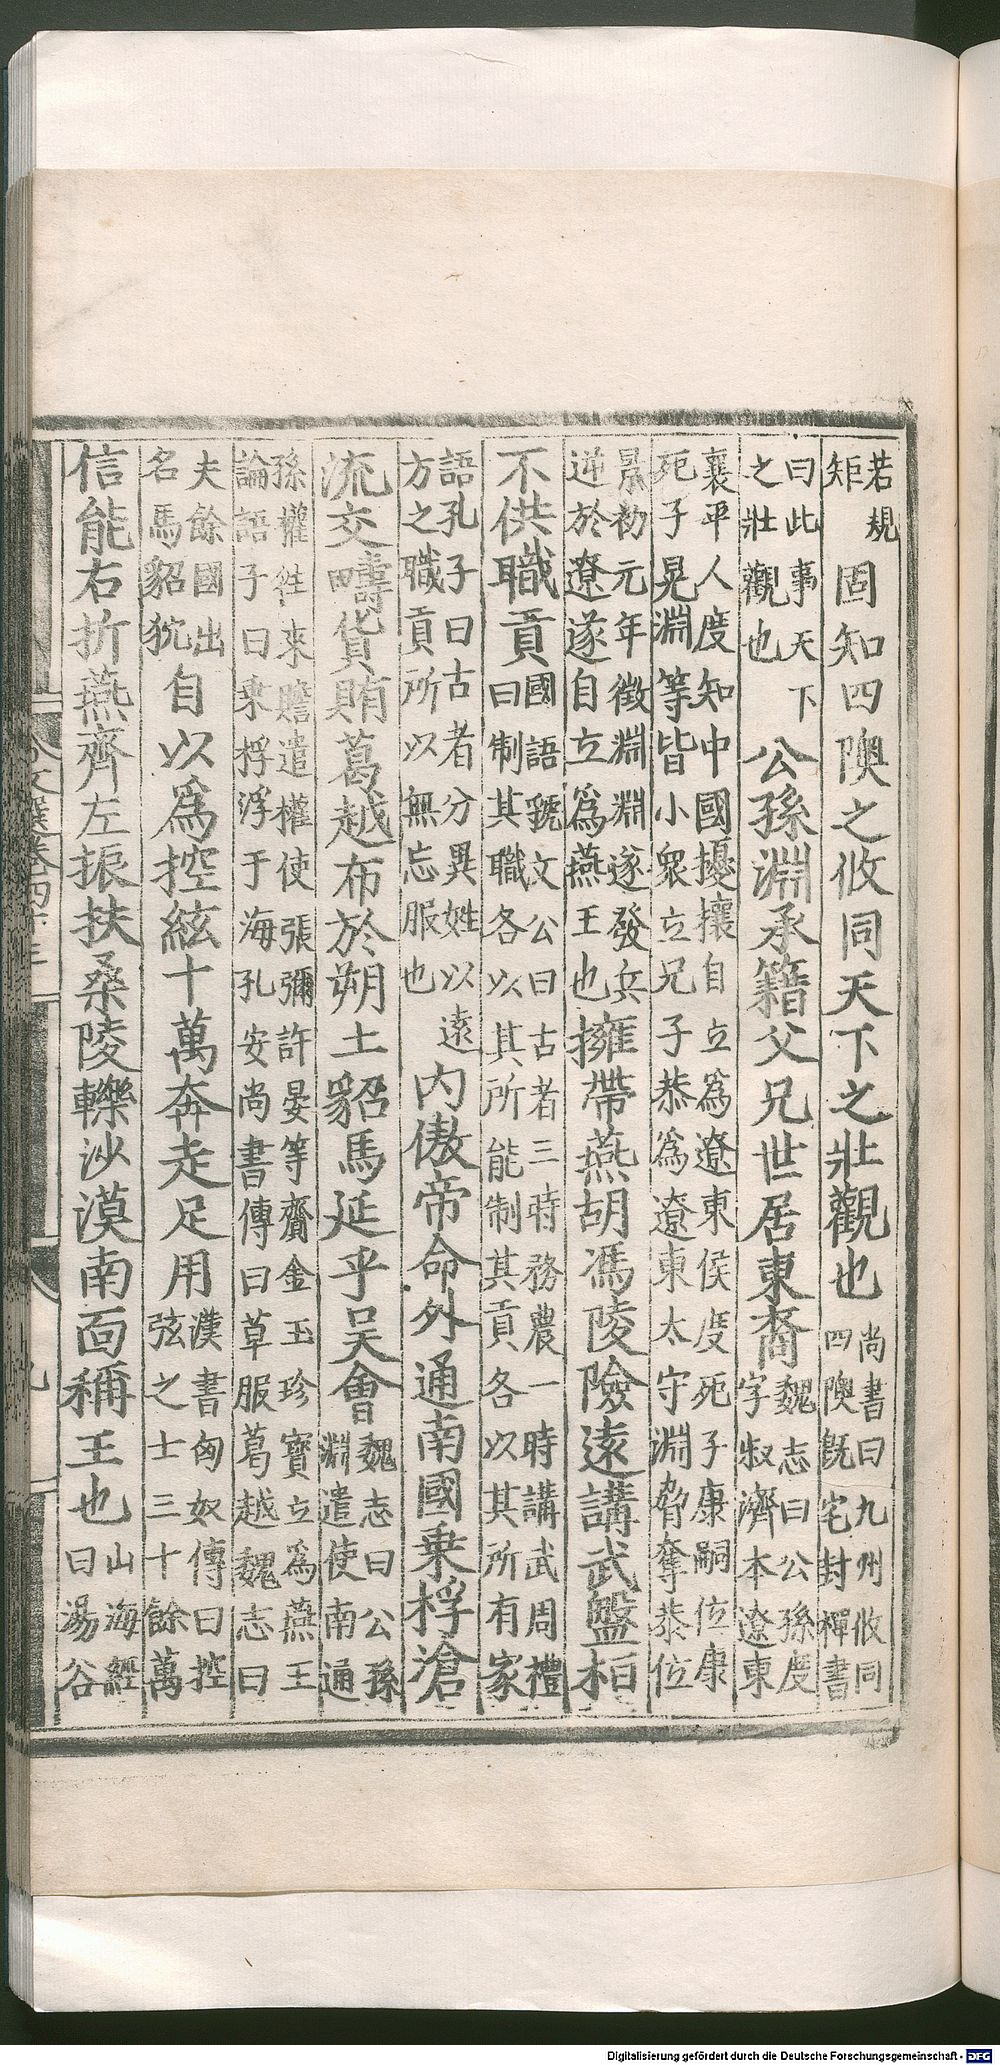 若規矩固知四隩之攸同天下之壯觀也尚書曰九州攸同四隩旣宅封禪書
曰此事天下之壯觀也公孫淵承籍父兄世居東裔魏志曰公孫度字叔濟本遼東
襄平人度知中國擾攘自立爲遼東侯度死子康嗣位康死子晃淵等皆小衆立兄子恭爲遼東太守淵脅奪恭位
景初元年徵淵淵遂發兵逆於遼遂自立爲燕王也擁帶燕胡馮陵險遠講武盤桓
不供職貢國語虢文公曰古者三時務農一時講武周禮曰制其職各以其所能制其貢各以其所有家
語孔子曰古者分異姓以遠方之職貢所以無忘服也内傲帝命外通南國乗桴滄
流交疇貨賄葛越布於朔土貂馬延乎吴會魏志曰公孫淵遣使南通
孫權往来贍遣權使張彌許晏等齎金玉珍寳立爲燕王論語子曰乗桴浮于海孔安尚書傳曰草服葛越魏志曰
夫餘國出名馬貂狖自以爲控絃十萬奔走足用漢書匈奴傳曰控弦之士三十餘萬
信能右折燕齊左振扶桑陵轢沙漠南面稱王也山海經曰湯谷
Digitalisierung gefördert durch die Deutsche Forschungsgemeinschaft - DFG